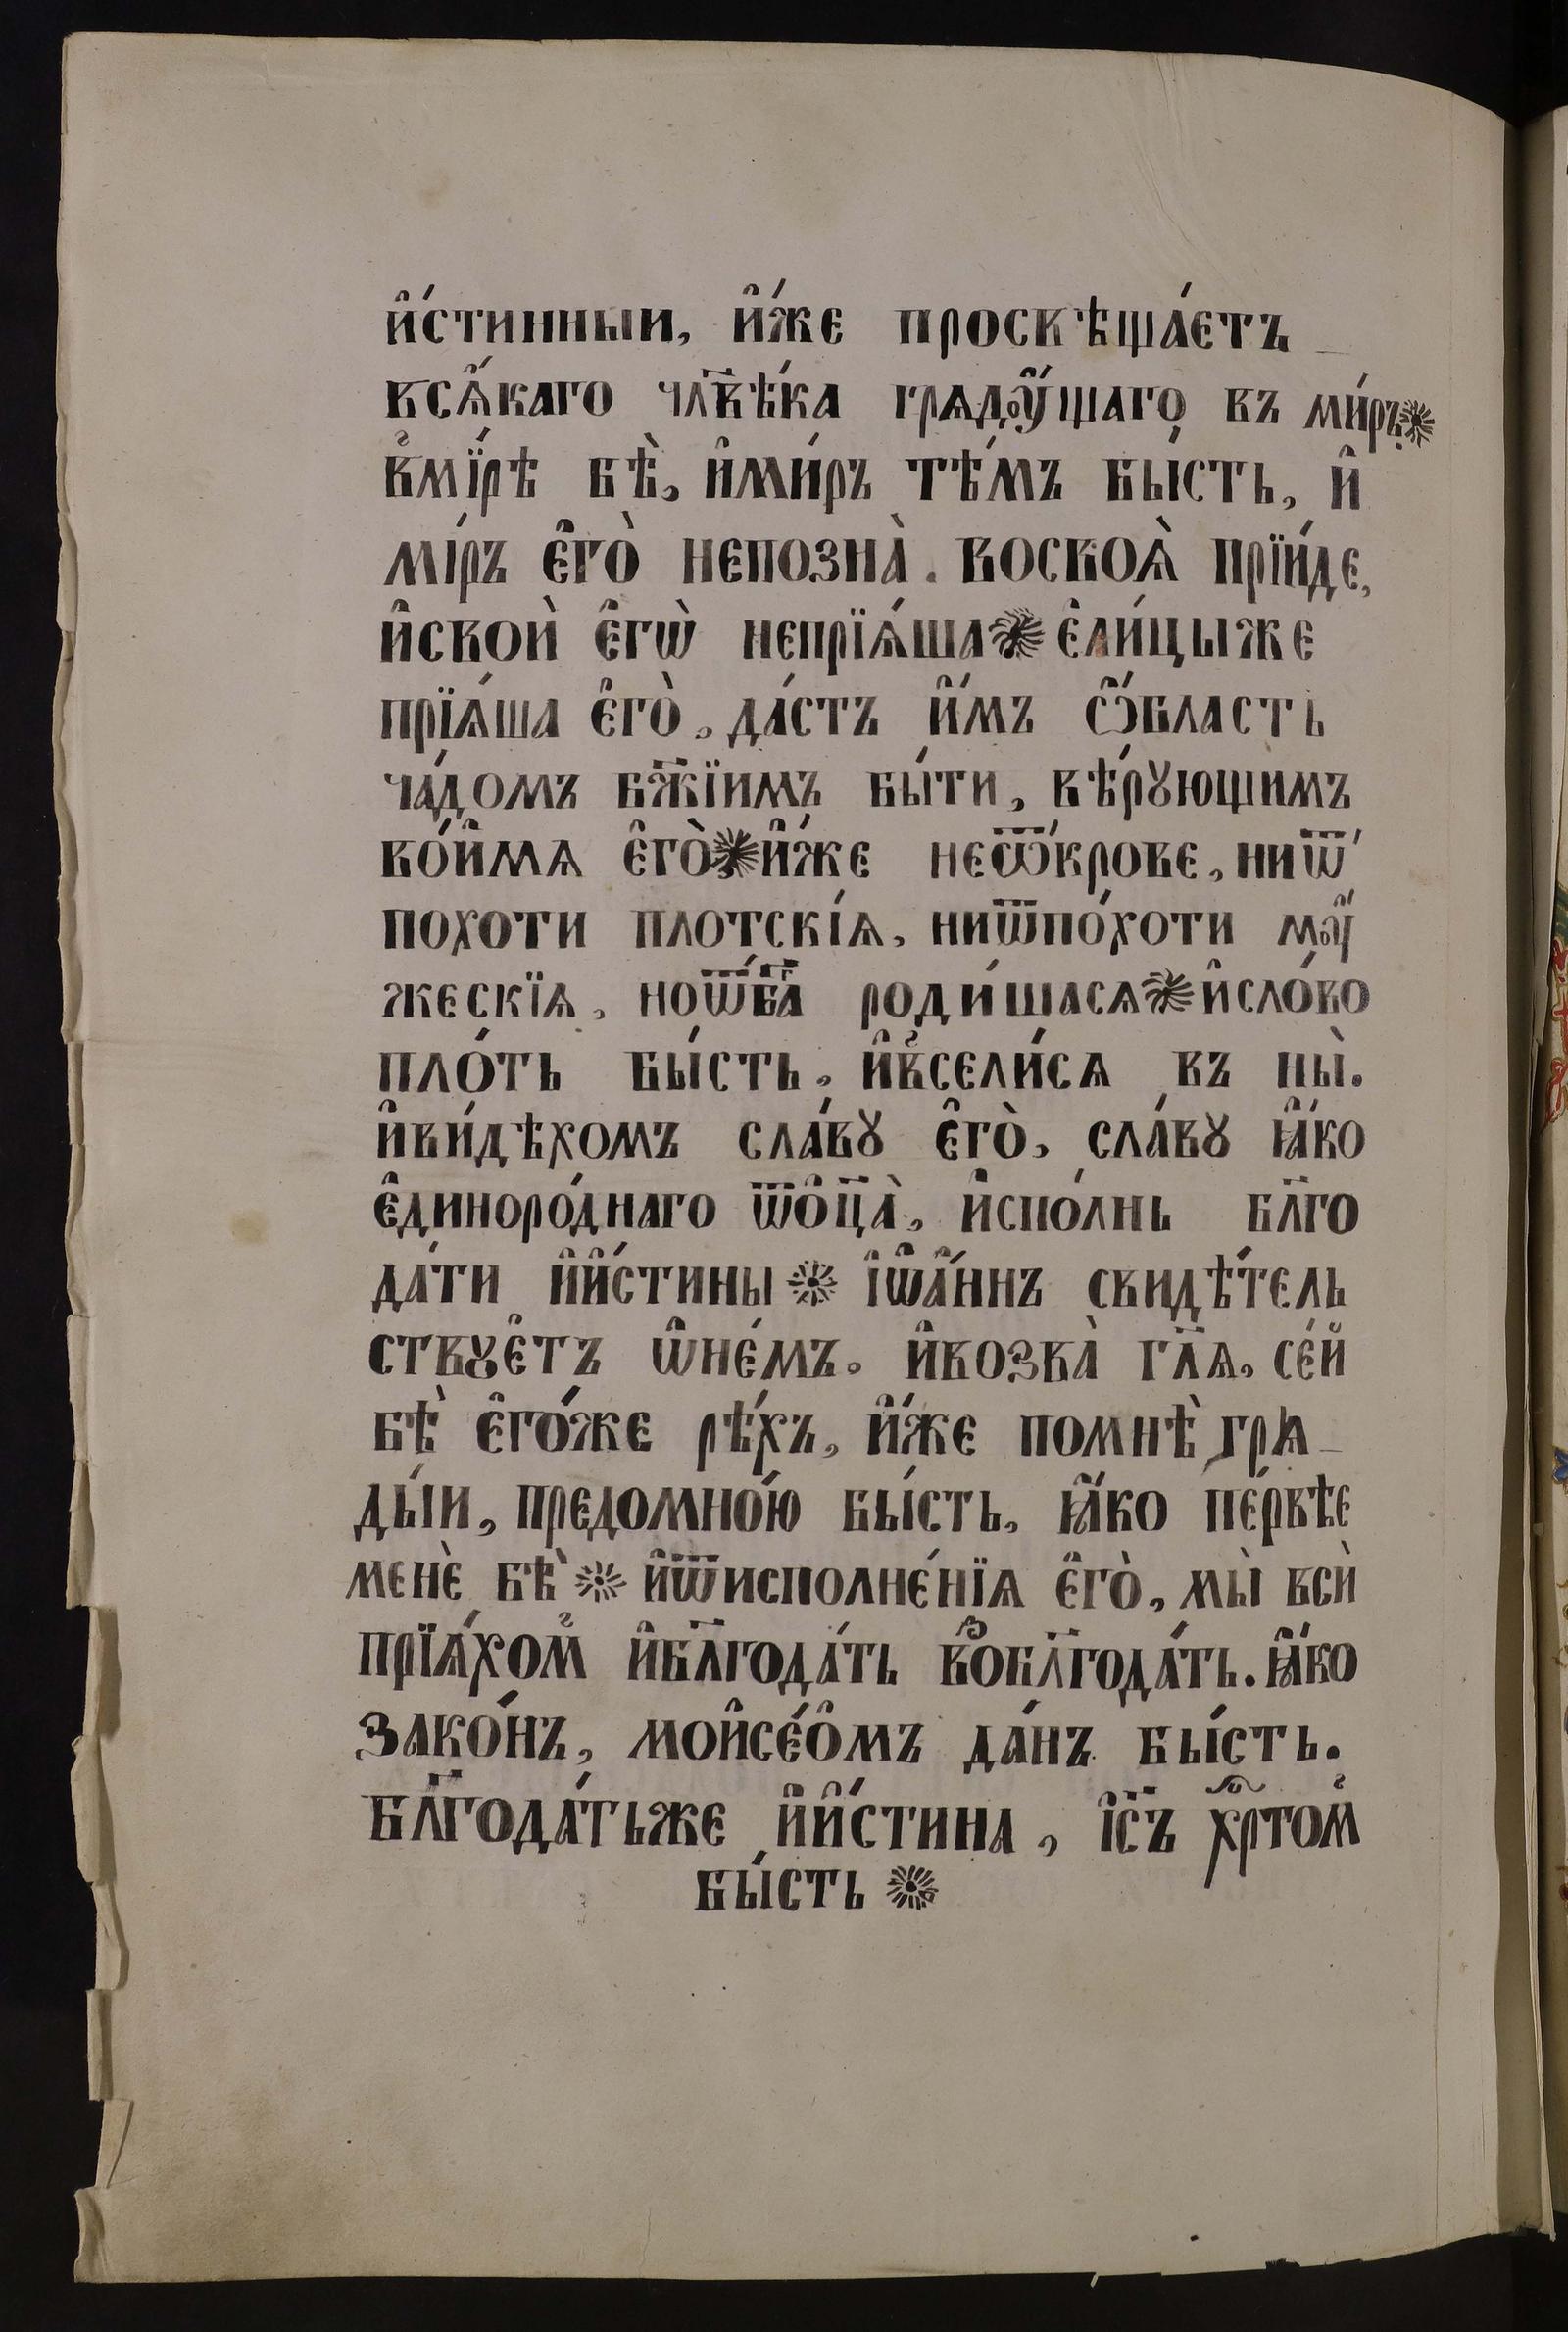 и҆́стинныи, и҆́же просвѣща́єтъ
всѧ҆́каго чл҃вѣ́ка грѧдꙋ҆́щаго въ ми́ръ
в̾мї́рѣ бѣ̀, и҆ми́ръ тѣ́мъ бы́сть, и҆
мі́ръ є҆го̀ непозна̀. восвоѧ̀ прїи́де,
и҆своѝ є҆гѡ̀ непрїѧ́ша є҆ли́цыже
прїѧ́ша є҆го̀, да́стъ и҆́мъ ѡ҆́бласть
ча́домъ бж҃їимъ бы́ти, вѣ́рꙋющимъ
во́и҆мѧ є҆го̀ и҆́же неѿкрове, ниѿ
похоти плотскі́ѧ, ниѿпо́хоти мꙋ҆́
жескїѧ, ноѿбг҃а роди́шасѧ и҆сло́во
пло́ть бы́сть, и҆в̾сели́сѧ въ ны̀.
и҆ви́дѣхомъ сла́вꙋ є҆го̀, сла́вꙋ ꙗ҆́ко
є҆диноро́днаго ѿо҆ц҃а̀, и҆спо́лнь бл҃го
да́ти и҆и҆́стины і҆ѡ҆а҆́ннъ свидѣ́тель
ствꙋє҆тъ ѡ҆не́мъ. и҆возва̀ гл҃ѧ, се́й
бѣ̀ є҆го́же рѣ́хъ, и҆́же помнѣ̀ грѧ
ды́и, предомно́ю бы́сть, ꙗ҆́ко пе́рвѣе
менѐ бѣ̀ и҆ѿисполне́нїѧ є҆го̀, мы̀ всѝ
прїѧ́хом̾ и҆бл҃года́ть воз̾бл҃года́ть. ꙗ҆́ко
зако́нъ, мои҆сє́о҆мъ да́нъ бы́сть.
бл҃года́тьже и҆и҆́стина, і҆с҃ъ хр҃том̾
бы́сть